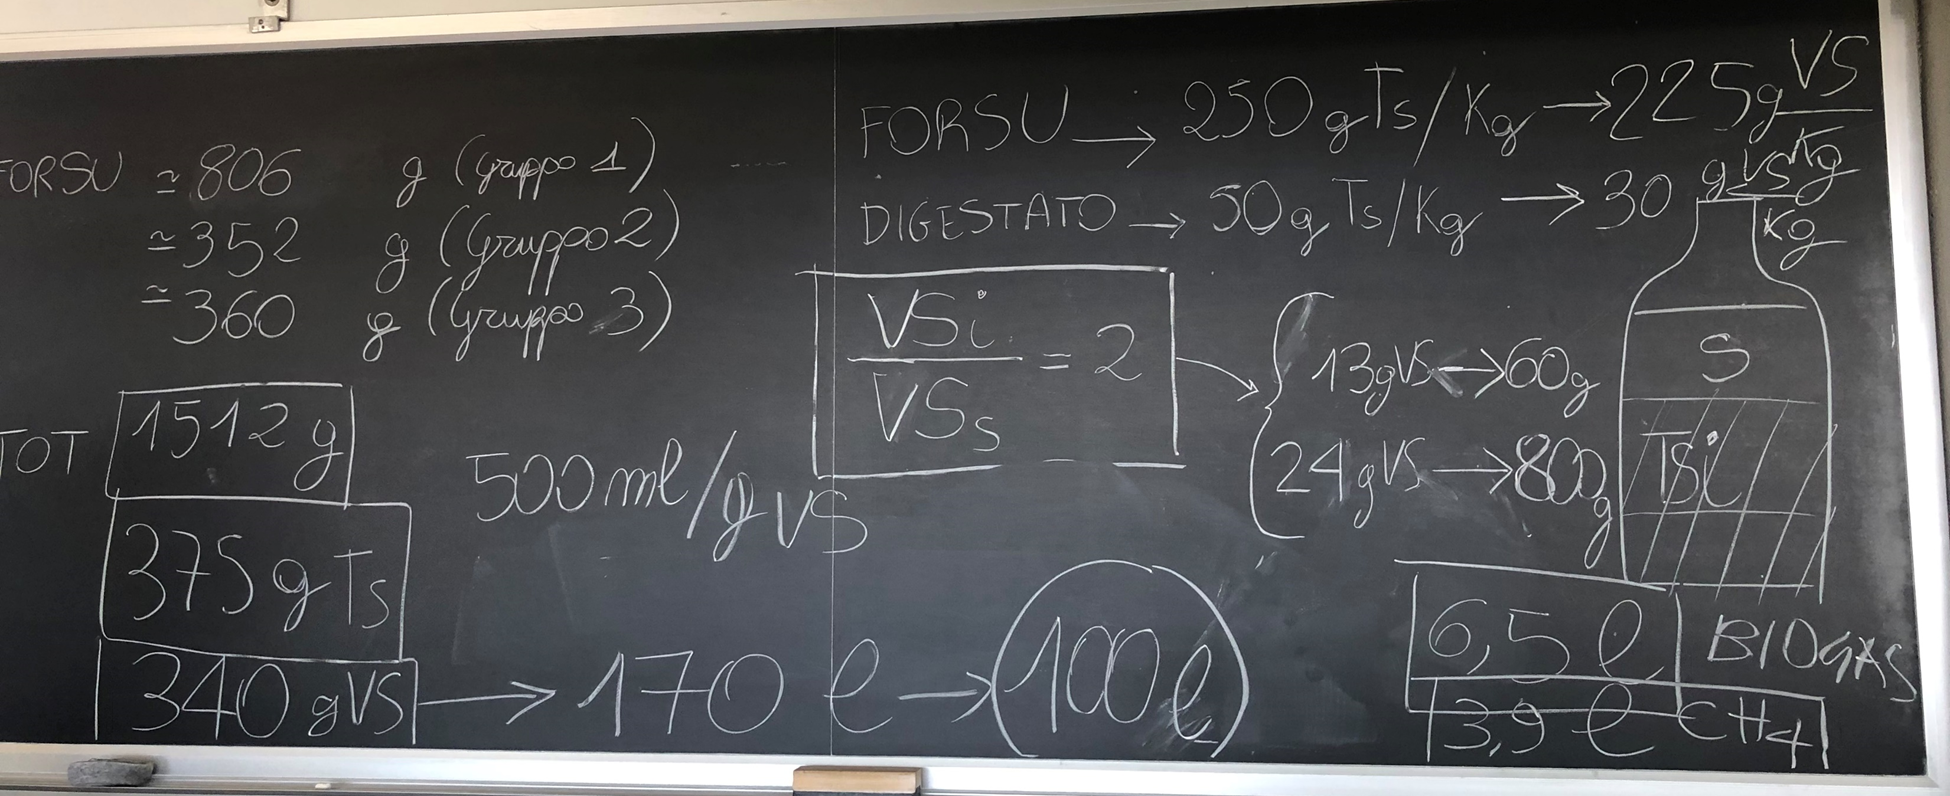 FORSU ≃ 806 g (gruppo 1)
≃ 352 g (Gruppo 2)
≃ 360 g (Gruppo 3)
TOT 1512 g
375 g Ts
340 gVS → 170 l → 100 l
500 ml/g VS
FORSU → 250 g Ts/Kg → 225 g VS/Kg
DIGESTATO → 50 g Ts/Kg → 30 g VS/Kg
VSi/VSs = 2
13 gVS → 60 g
24 gVS → 800 g
S
TSi
6,5 l BIOGAS
3,9 l CH4